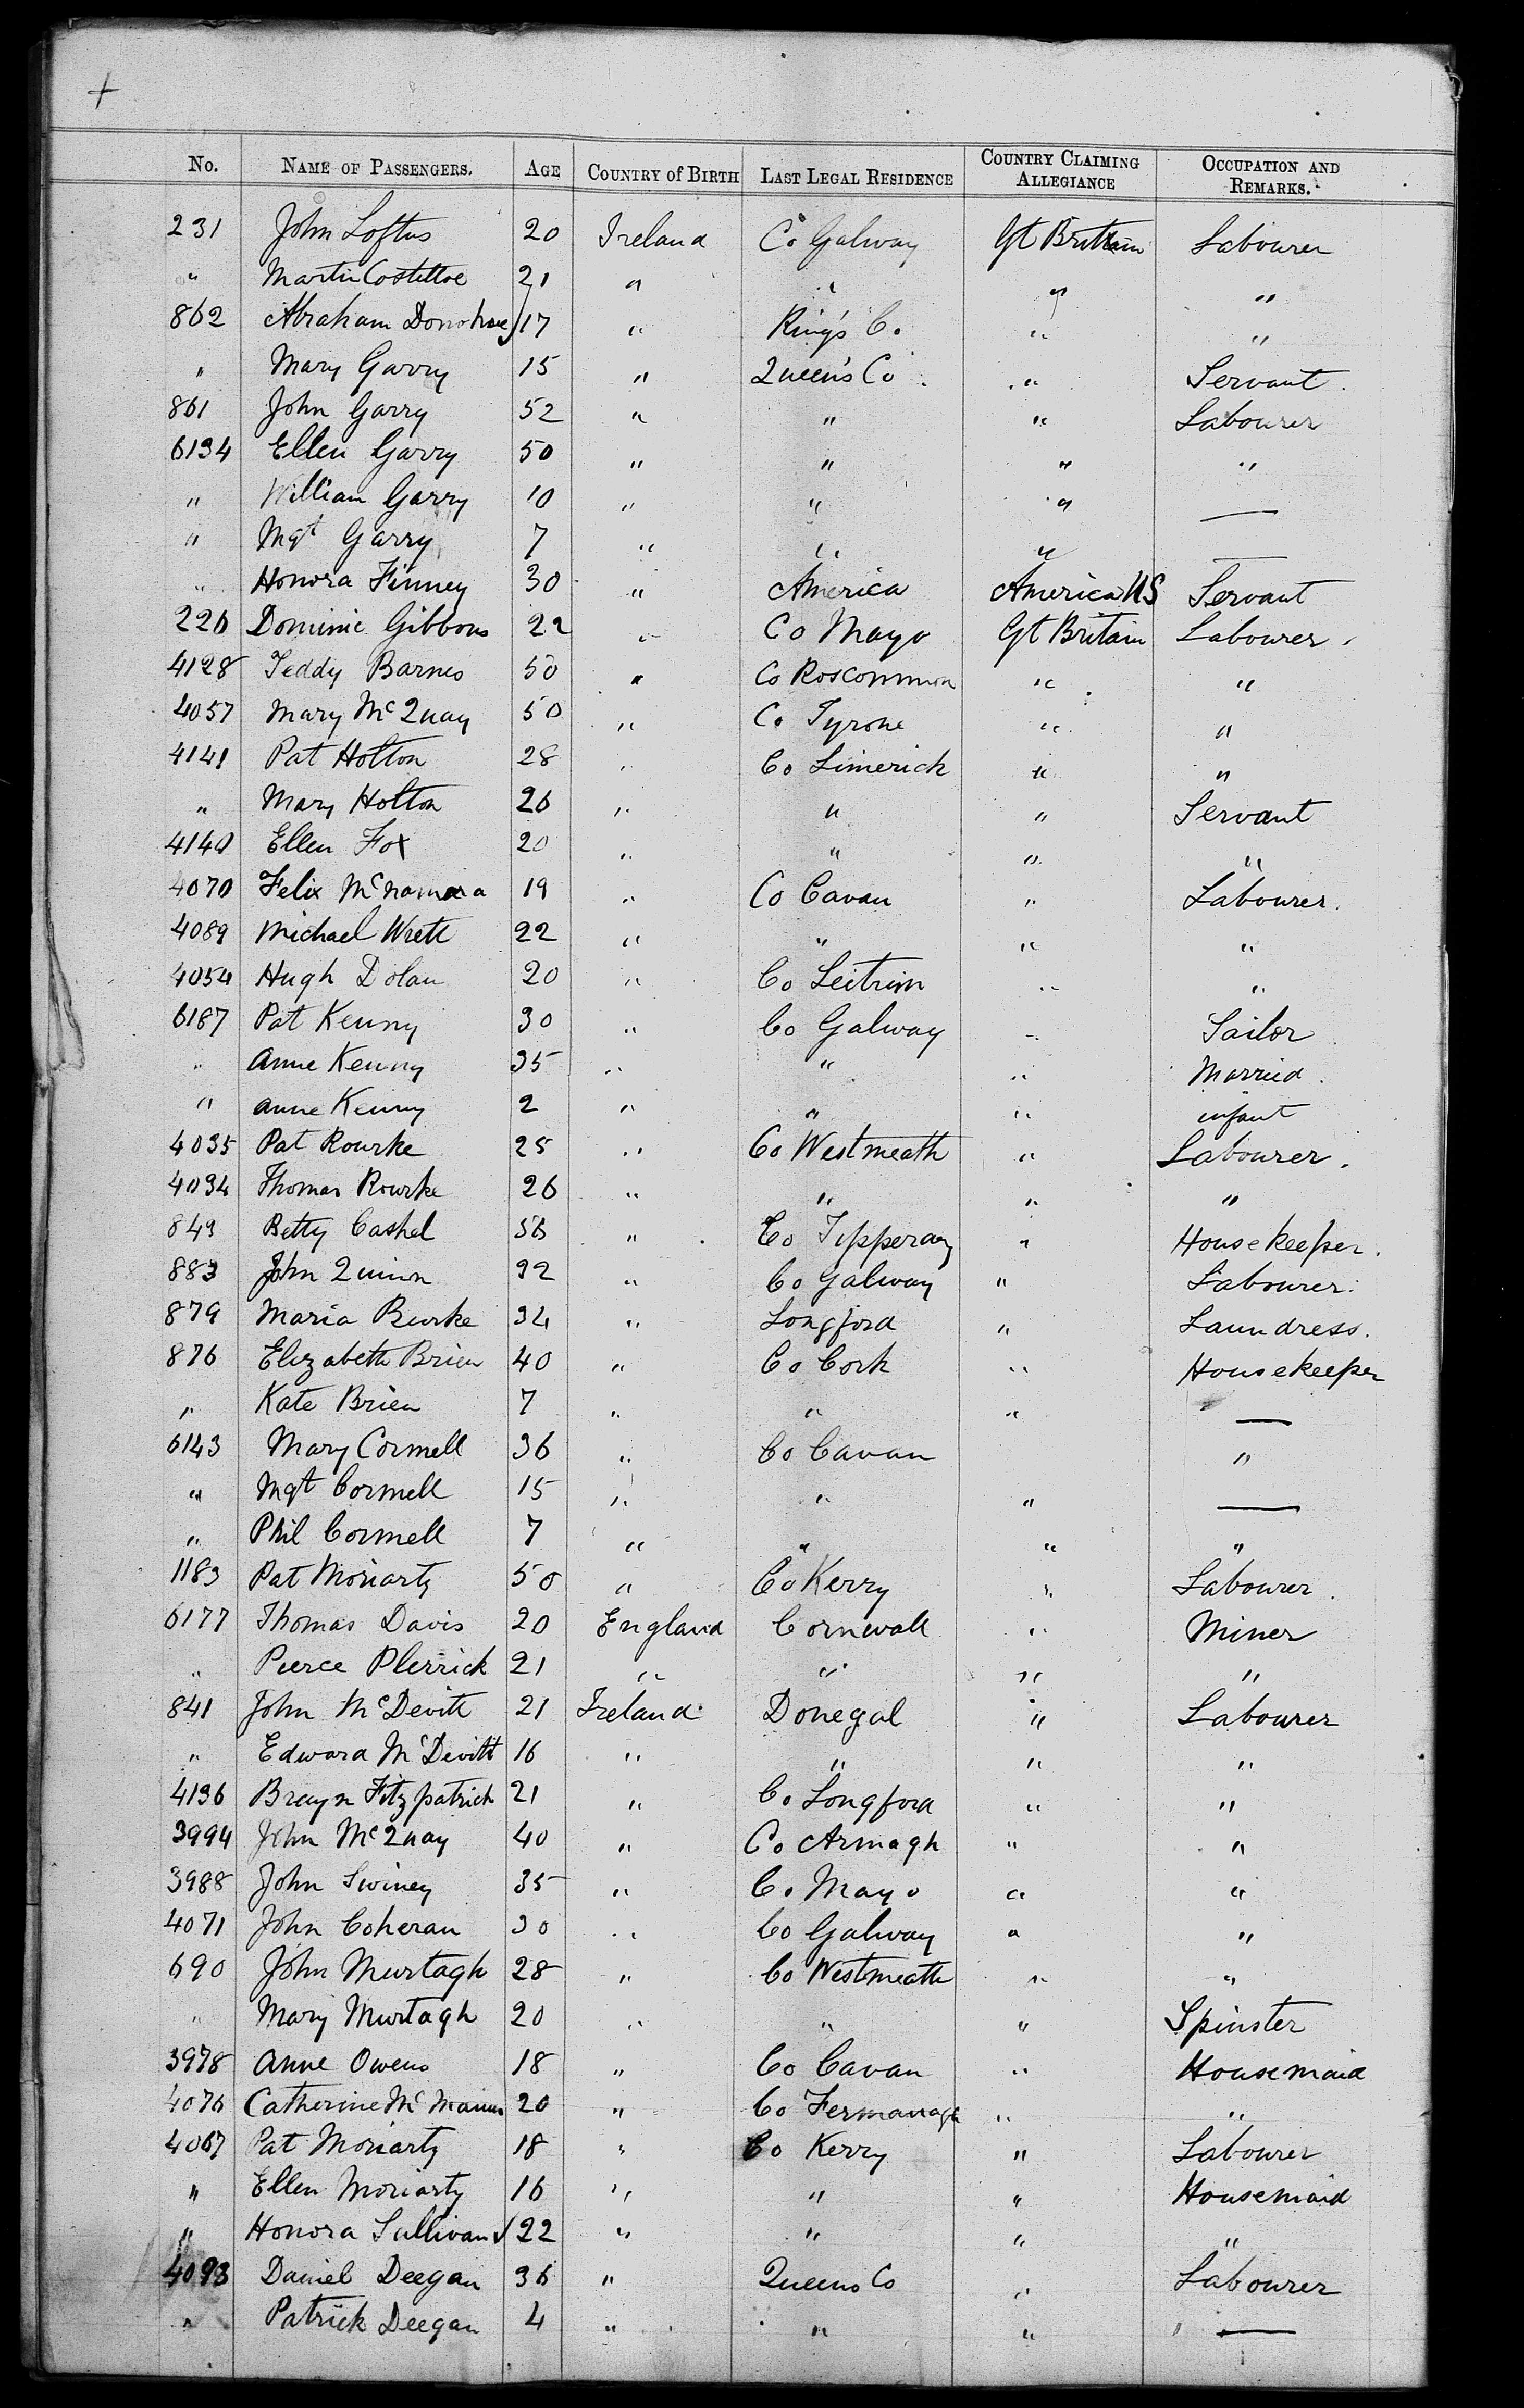 +
No. NAME OF PASSENGERS. AGE COUNTRY of BIRTH LAST LEGAL RESIDENCE COUNTRY CLAIMING ALLEGIANCE OCCUPATION AND REMARKS.
231 John Loftus 20 Ireland Co Galway Gt Brittain Labourer
" Martin Costelloe 21 " " " "
862 Abraham Donohue 17 " King's Co. " "
" Mary Garry 15 " Queen's Co. " Servant.
861 John Garry 52 " " " Labourer
6134 Ellen Garry 50 " " " "
" William Garry 10 " " " —
" Mgt Garry 7 " " " —
" Honora Finney 30 " America America US Servant
226 Dominic Gibbons 22 " Co Mayo Gt Britain Labourer.
4128 Teddy Barnes 50 " Co Roscommon " "
4057 Mary McQuay 50 " Co Tyrone " "
4141 Pat Holton 28 " Co Limerick " "
" Mary Holton 26 " " " Servant
4140 Ellen Fox 20 " " " "
4070 Felix McNamara 19 " Co Cavan " Labourer.
4089 Michael 22 " " " "
4054 Hugh Dolan 20 " Co Leitrim " "
6187 Pat Kenny 30 " Co Galway " Sailor
" Anne Kenny 35 " " " Married.
" Anne Kenny 2 " " " infant
4035 Pat Rourke 25 " Co Westmeath " Labourer.
4034 Thomas Rourke 26 " " " "
849 Betty Cashel 56 " Co Tipperary " Housekeeper.
883 John Quinn 32 " Co Galway " Labourer.
879 Maria Burke 34 " Longford " Laundress.
876 Elizabeth Brien 40 " Co Cork " Housekeeper
" Kate Brien 7 " " " —
6143 Mary Cormell 36 " Co Cavan "
" Mgt Cormell 15 " " " —
" Phil Cormell 7 " " " "
1183 Pat Moriarty 50 " Co Kerry " Labourer.
6177 Thomas Davis 20 England Cornwall " Miner
" Pierce Plerrick 21 " " " "
841 John McDevitt 21 Ireland Donegal " Labourer
" Edward McDevitt 16 " " " "
4136 Brayn Fitzpatrick 21 " Co Longford " "
3994 John McQuay 40 " Co Armagh " "
3988 John Swiney 35 " Co Mayo " "
4071 John Coheran 30 " Co Galway " "
690 John Murtagh 28 " Co Westmeath " "
" Mary Murtagh 20 " " " Spinster
3978 Anne Owens 18 " Co Cavan " Housemaid
4076 Catherine McManus 20 " Co Fermanagh " "
4067 Pat Moriarty 18 " Co Kerry " Labourer
" Ellen Moriarty 16 " " " Housemaid
" Honora Sullivan 22 " " " "
4093 Daniel Deegan 36 " Queens Co " Labourer
" Patrick Deegan 4 " " " " —